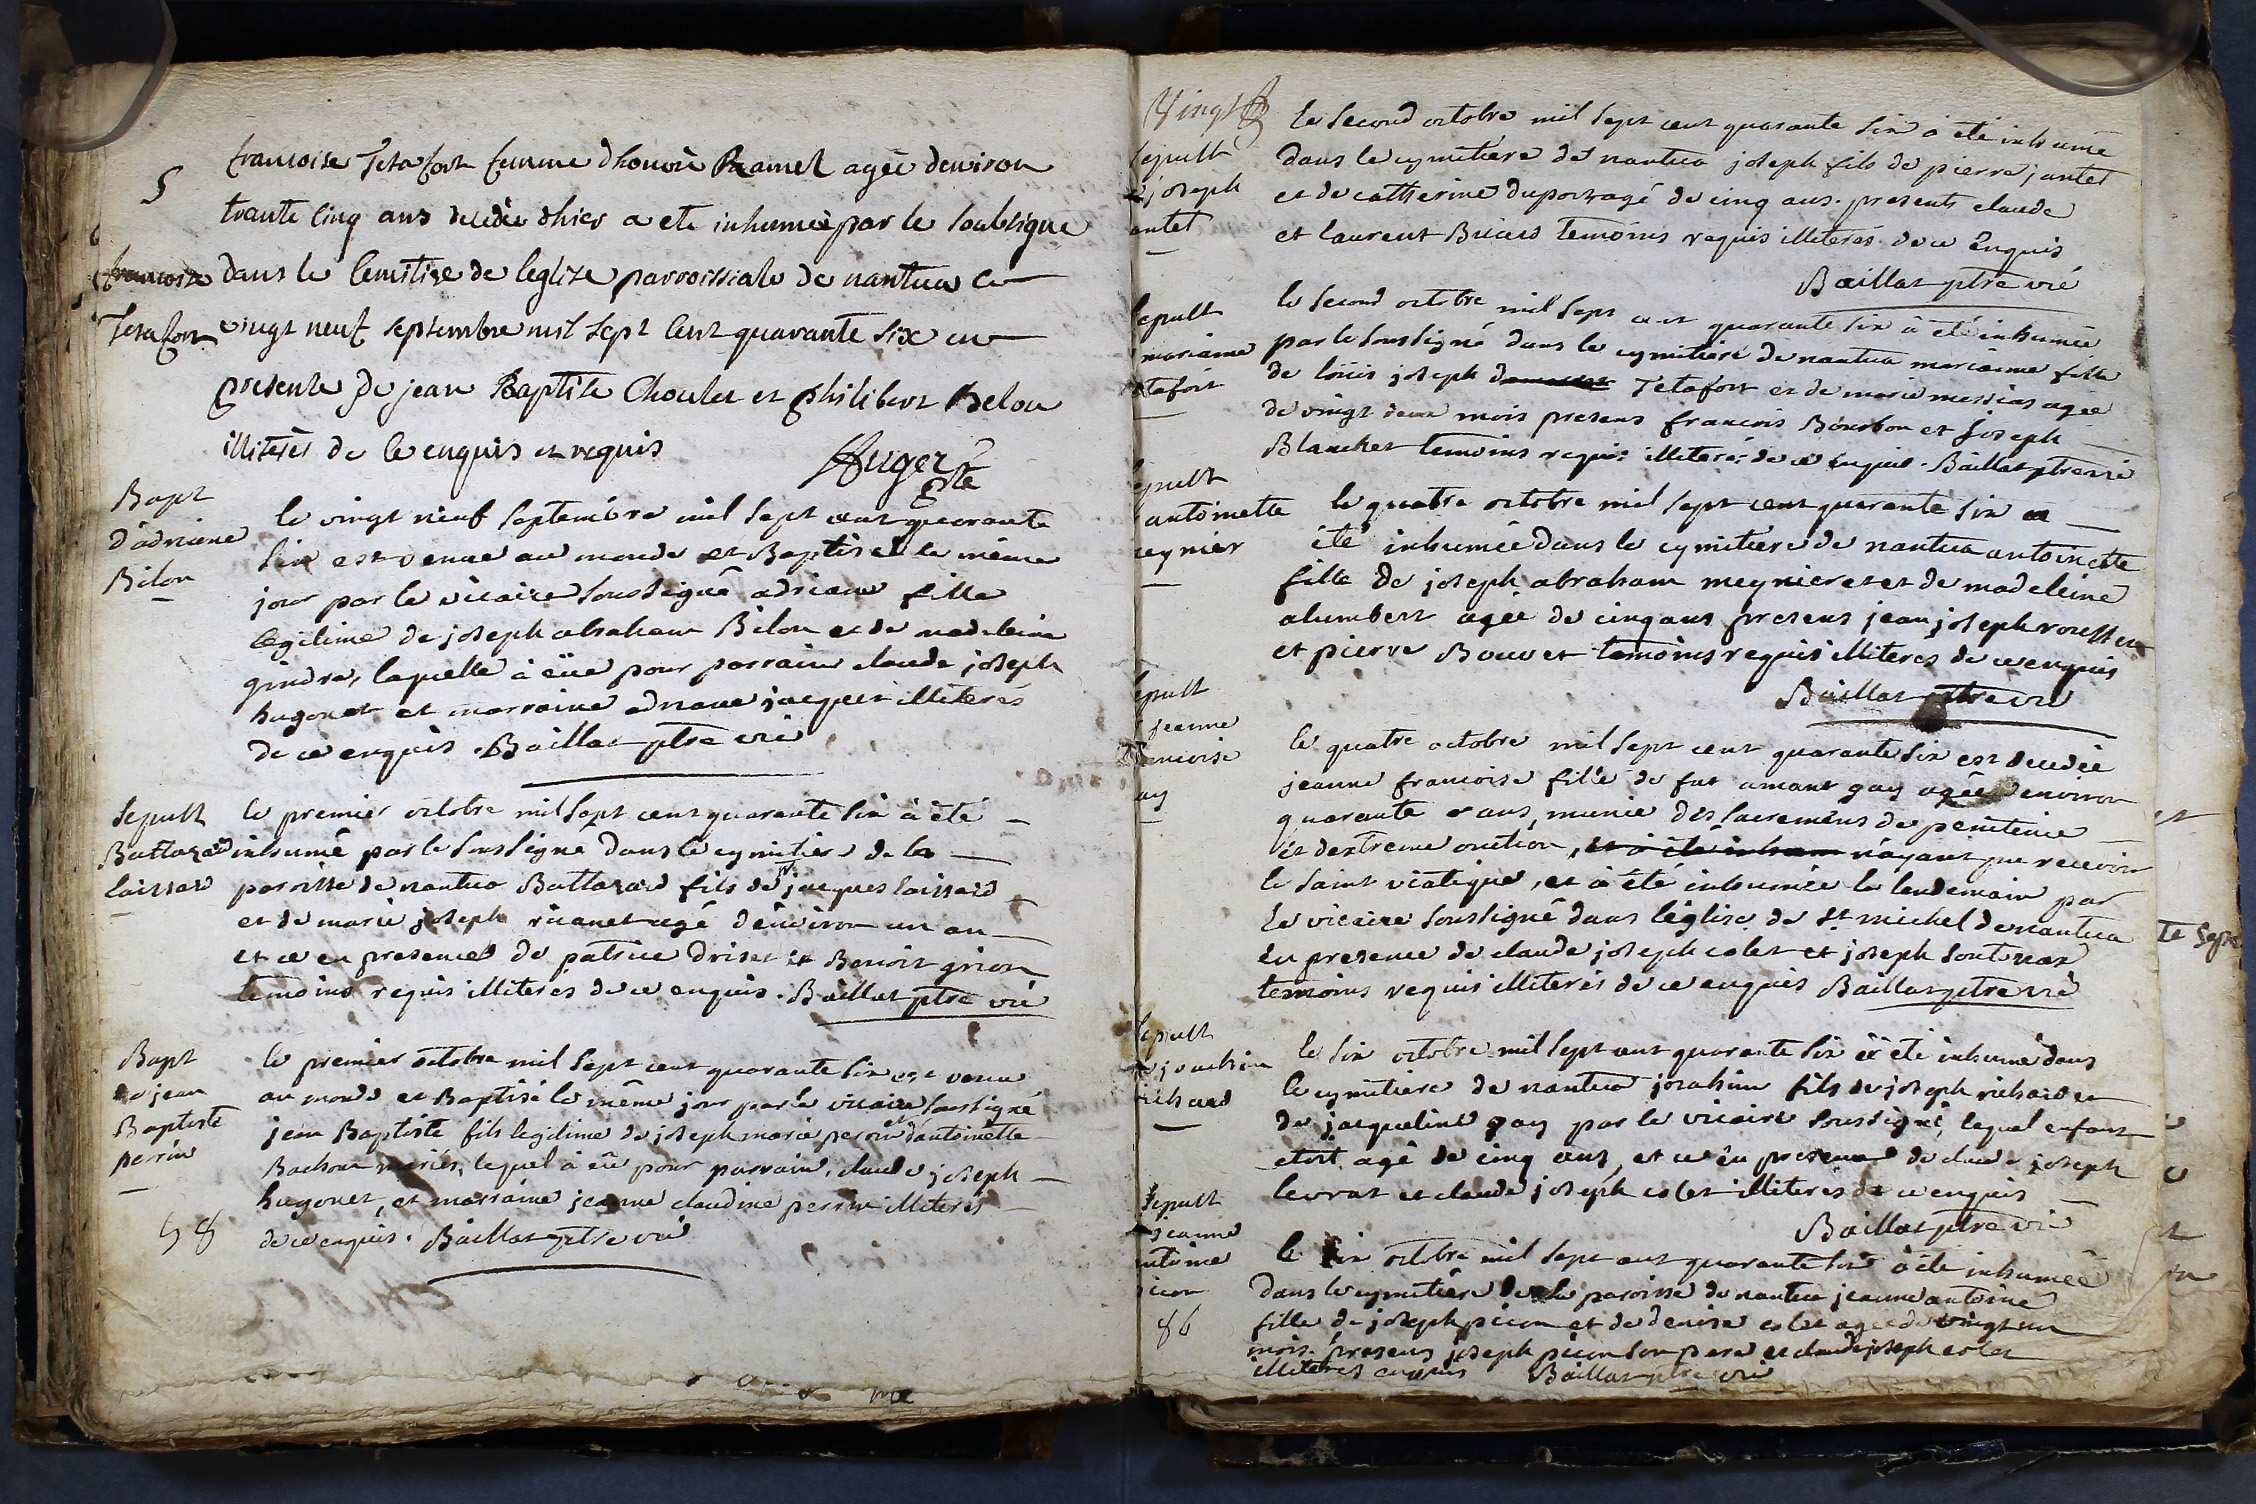 S
francoise Tetafort femme dhonoré Ramel agée denviron
trante cinq ans decedée dhier a eté inhumée par le soubsigne
francoise
dans le cemitire de leglize parroissiale de nantua ce
Tetafort
vingt neuf septembre mil sept cent quarante six en
presente de jean Baptiste Choulet et philibert Belou
illiterés de ce enquis et requis
Auger ptre
Bapt
d'adriene
Bilon
le vingt neuf septembre mil sept cent quarante
six est venue au monde et Baptisée le même
jour par le vicaire soussigné adriene fille
legitime de joseph abraham Bilon et de madeleine
gindre, laquelle à eüe pour parrain claude joseph
hugonet et marraine adriane jacquet illiterés
de ce enquis. Baillat ptre vié
Sepult
Baltazard
laissard
le premier octobre mil sept cent quarante six à été
inhumé par le soussigné dans le cymitiere de la
paroisse de nantua Baltazard fils de jacques laissard
et de marie joseph ricanet agé d'environ un an
et ce en presence de patrice driset et Benoit grion
temoins requis illiterés de ce enquis. Baillat ptre vié
Bapt
de jean
Baptiste
perrin
le premier octobre mil sept cent quarante six est venu
au monde et Baptisé le même jour par le vicaire soussigné
jean Baptiste fils legitime de joseph marie perrin et d'antoinette
Bachon mariés, lequel à eü pour parrain, claude joseph
hugonet, et marraine jeanne claudine perrin illiterés
de ce enquis. Baillat ptre vié
58
Vingt
sepult
joseph
antet
le second octobre mil sept cent quarante six à eté inhumé
dans le cymitiere de nantua joseph fils de pierre jantet
et de catherine duport agé de cinq ans. presents claude
et laurent Buicis temoins requis illiterés de ce enquis
Baillat ptre vié
sepult
mariaine
tafort
le second octobre mil sept cent quarante six à été inhumée
par le soussigné dans le cymitiere de nantua mariaine fille
de loüis joseph Tetafort et de marie messias agée
de vingt deux mois presens francois Bourbon et joseph
Blanchet temoins requis illiterés de ce enquis. Baillat ptre vié
epult
antoinette
eynier
le quatre octobre mil sept cent quarante six a
été inhumée dans le cymitiere de nantua antoinette
fille de joseph abraham meynier et et de madeleine
alumbert agée de cinq ans presens jean joseph rousset
et pierre Bouvet temoins requis illiteres de ce enquis
Baillat ptre vié
epult
jeanne
francoise
ay
le quatre octobre mil sept cent quarante six est decedée
jeanne francoise fille de fut amant gay agée d'environ
quarante ans, munie des sacremens de penitence
et d'extreme onction, et à été inhum n'ayant pu recevoir
le saint viatique, et à été inhumée le lendemain par
le vicaire soussigné dans l'église de st. michel de nantua
en presence de claude joseph colet et joseph sontonax
temoins requis illiterés de ce enquis Baillat ptre vié
sepult
joachim
richard
le six octobre mil sept cent quarante six à été inhumé dans
le cymitiere de nantua joachim fils de joseph richard et
de jacqueline gay par le vicaire soussigné, lequel enfant
etoit agé de cinq ans, et ce en presence de claude joseph
levrat et claude joseph colet illiteres de ce enquis
Baillat ptre vié
Sepult
jeanne
antoine
picon
86
le six octobre mil sept cent quarante six à été inhumée
dans le cymitiere de la paroisse de nantua jeanne antoine
fille de joseph picon et de denise colet agée de vingt un
mois. presens joseph picon son pere et claude joseph colet
illiterés enquis Baillat ptre vié